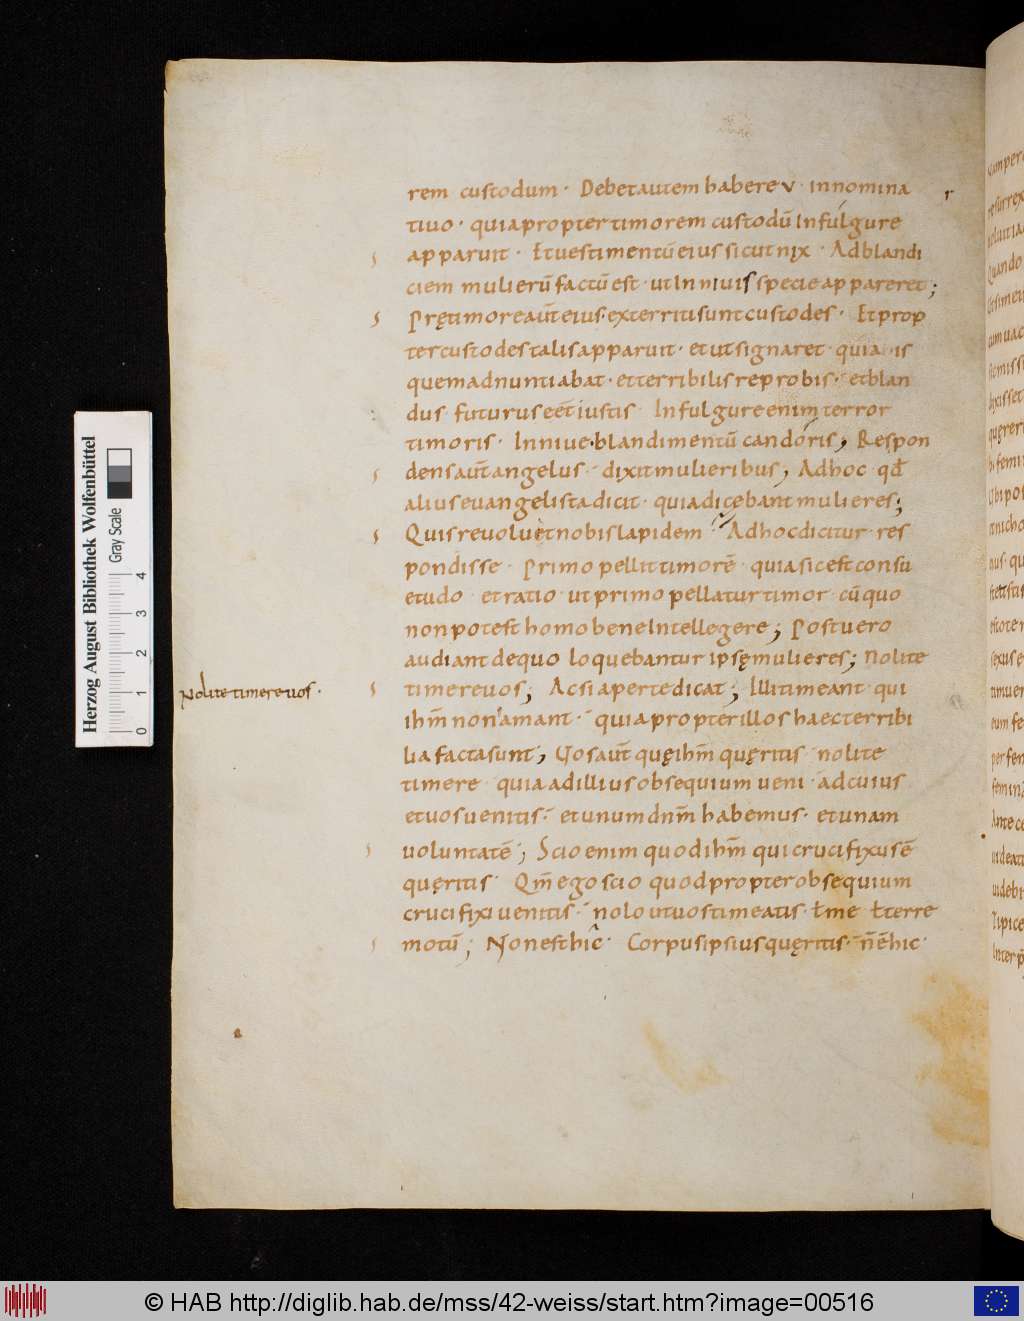 rem custodum · Debet autem habere v · in nomina
tiuo · quia propter timorem custodū In fulgure
apparuit · Et uestimentū eius sicut nix · Ad blandi
ciem mulierū factū est · ut In niuis specie appareret ;
Pre̜ timore aut̄ eius · exterriti sunt custodes · Et prop
ter custodes talis apparuit · et ut signaret · quia is
quem adnuntiabat · et terribilis reprobis · et blan
dus futurus eēt iustis · In fulgure enim terror
timoris · In niue · blandimentū candoris , Respon
dens aut̄ angelus · dixit mulieribus , Ad hoc qđ
alius euangelista dicit · quia dicebant mulieres ;
Quis reuoluet nobis lapidem Ad hoc dicitur · res
pondisse · Primo pellit timorē · quia sic est consu
etudo · et ratio · ut primo pellatur timor · cū quo
non potest homo bene Intellegere ; Post uero
audiant de quo loquebantur ipse̜ mulieres ; Nolite
Nolite timere uos ·
timere uos ; Ac si aperte dicat ; Illi timeant · qui
ihm̄ non amant · quia propter illos haec terribi
lia facta sunt , Uos aut̄ que̜ ihm̄ que̜ritis · nolite
timere · quia ad illius obsequium ueni · ad cuius
et uos uenitis · et unum dnm̄ habemus · et unam
uoluntatē ; Scio enim quod ihm̄ qui crucifixus ē
que̜ritis · Qm̄ ego scio quod propter obsequium
crucifixi uenitis · nolo ut uos timeatis · ł me · ł terre
motū ; Non est hic · Corpus ipsius que̜ritis · n̄ ē hic ·
r
Herzog August Bibliothek Wolfenbüttel
Gray Scale
0 1 2 3 4
© HAB http://diglib.hab.de/mss/42-weiss/start.htm?image=00516